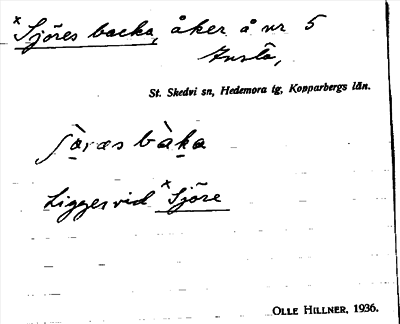 ×Sjöres backa, åker å nr 5
Insta,
St. Skedvi sn, Hedemora tg, Kopparbergs län.
ʃòræs bàka
Ligger vid ×Sjöre
OLLE HILLNER, 1936.